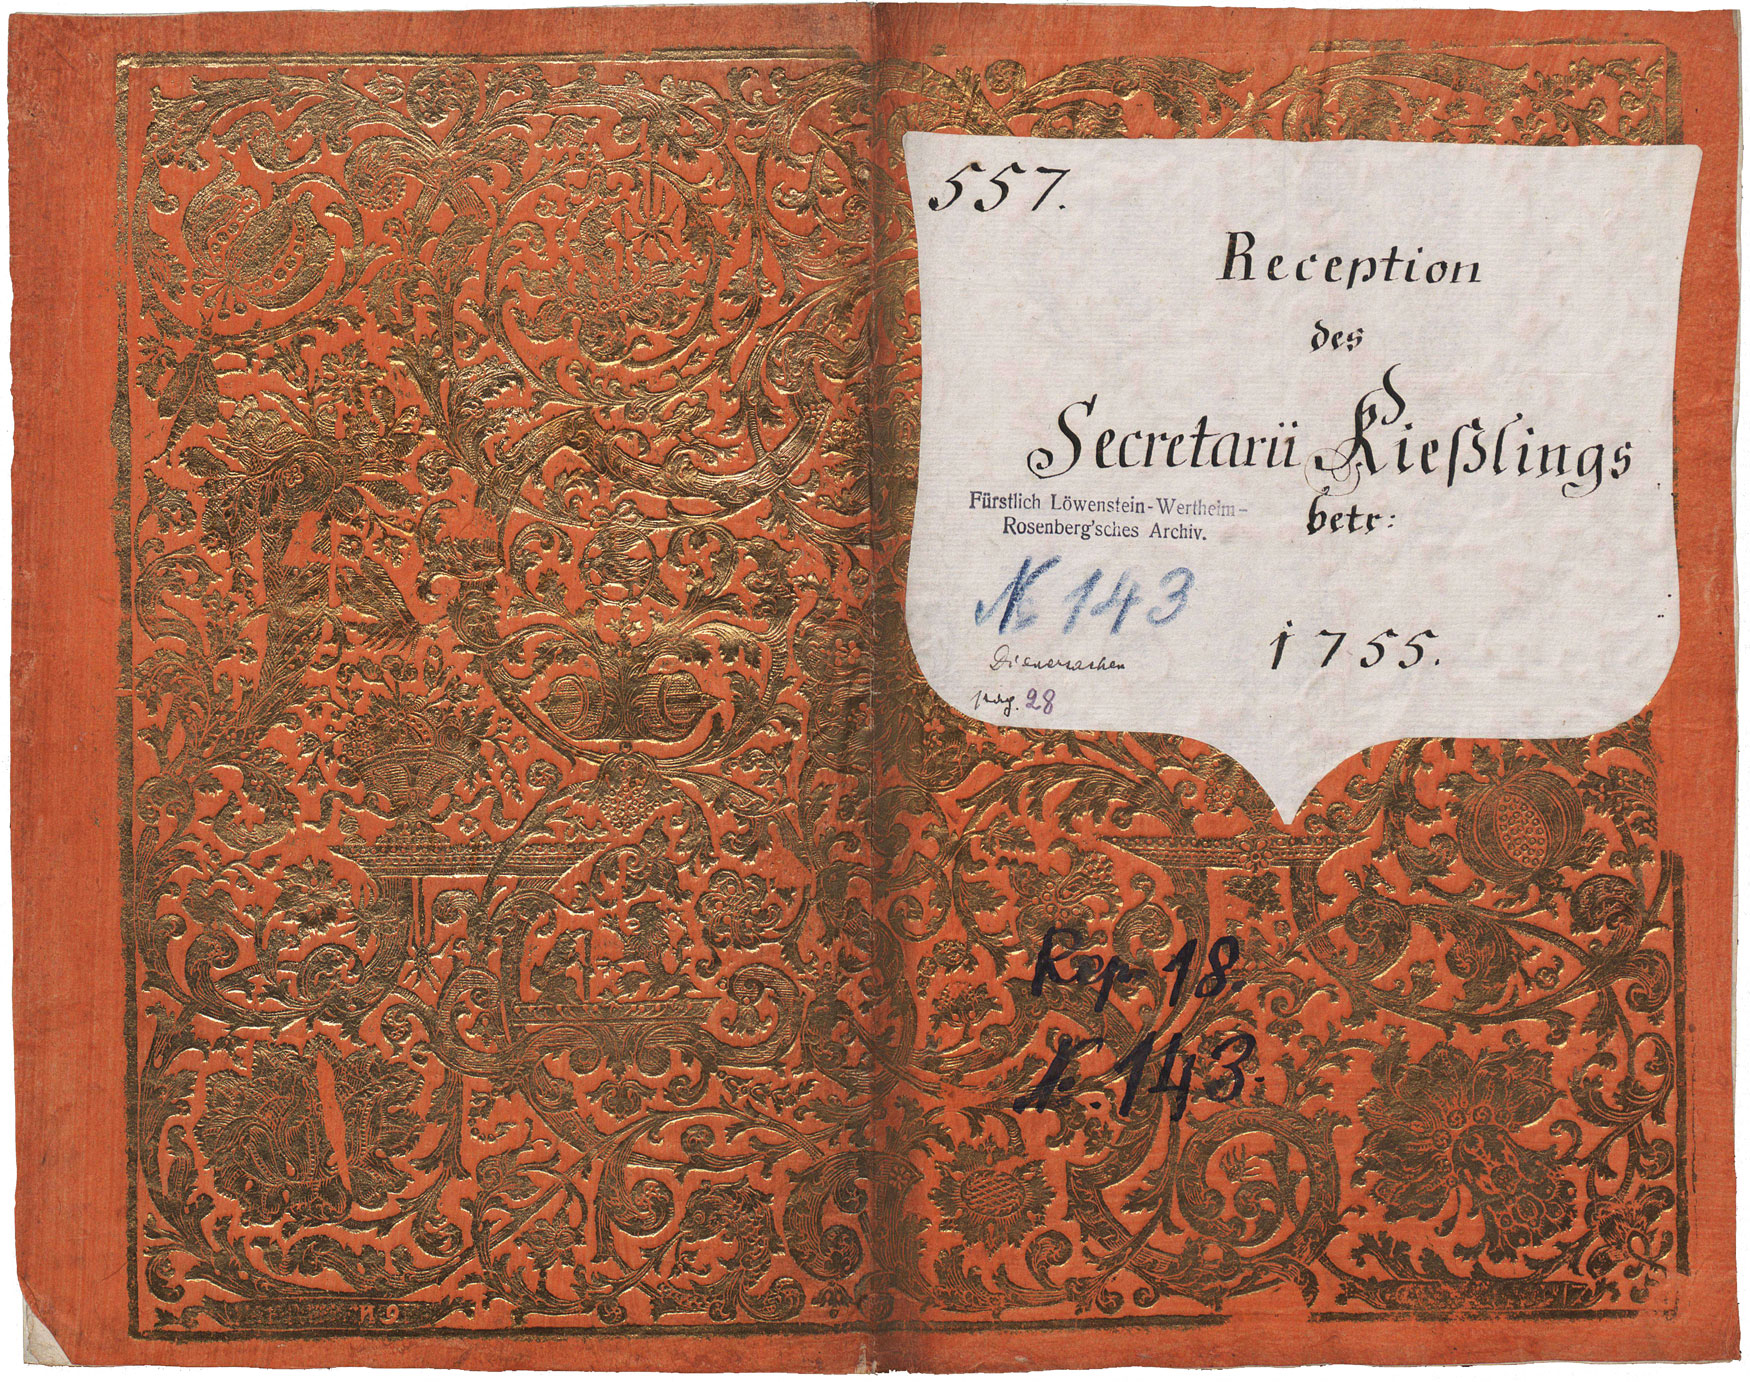 557.
Reception
des
Secretarii Kießlings
betr:
Fürstlich Löwenstein-Wertheim-
Rosenberg'sches Archiv.
№ 143
1755.
Dienersachen
pag. 28
Rep. 18.
N. 143.